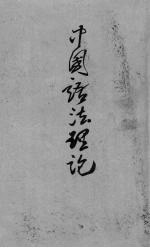 中國語法理論